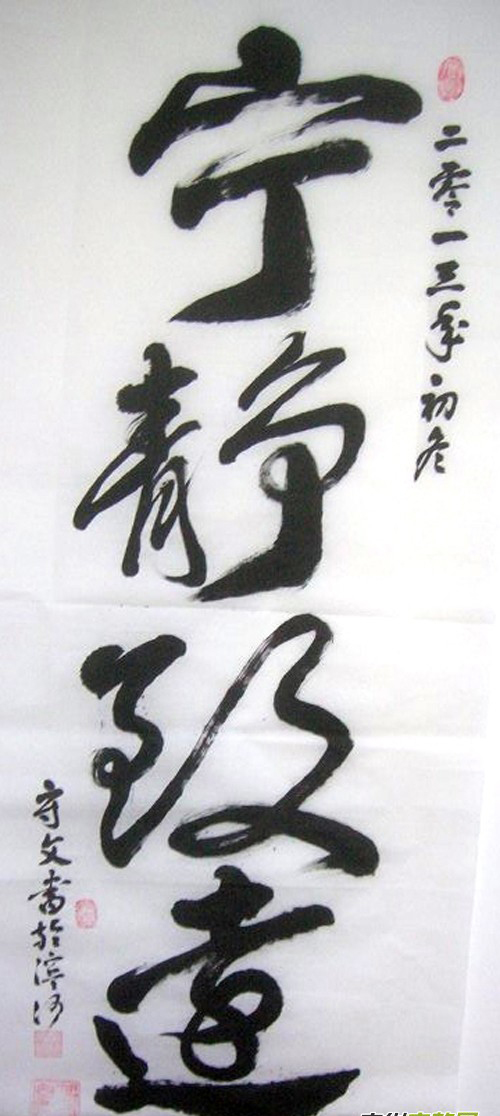 二零一三年初冬
宁静致远
守文书於滨河